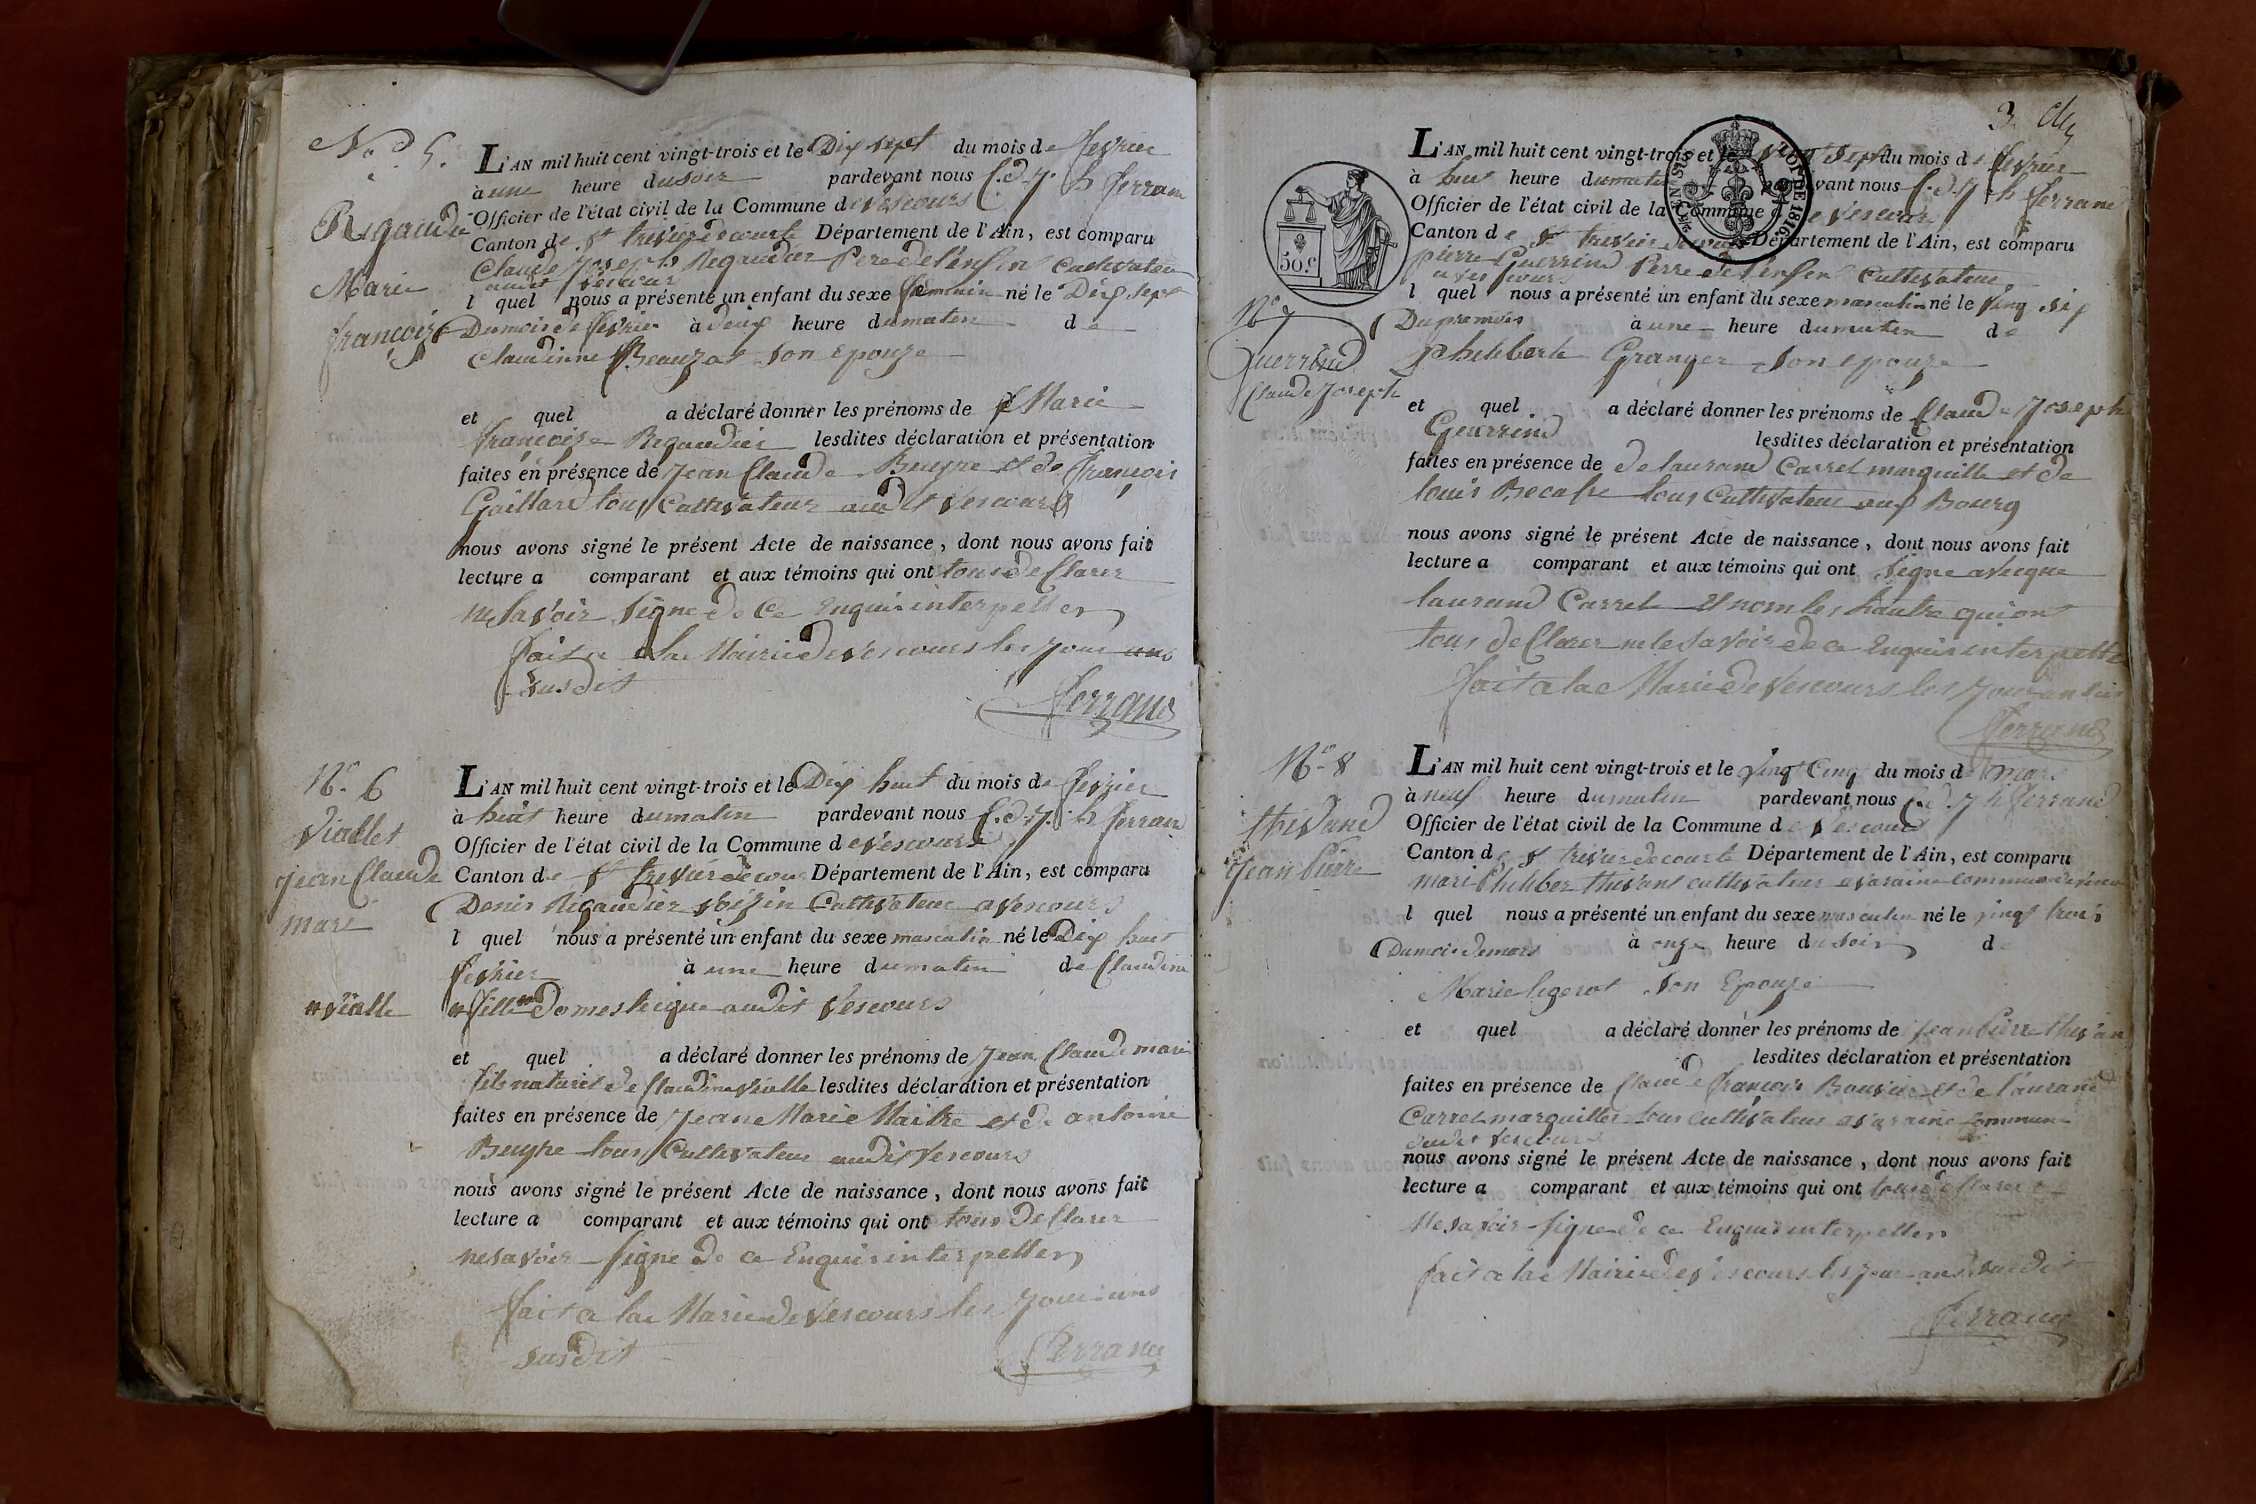 No. 5.
Regaudie
Marie
françoise
L'AN mil huit cent vingt-trois et le Dix sept du mois de fevrier
à une heure du soir pardevant nous C. d. J. h ferrand
Officier de l'état civil de la Commune de vescours
Canton de St trevier de courte Département de l'Ain, est comparu
Claude joseph Regaudier Pere de l'enfent Cultivateur
audit vescour
l quel nous a présenté un enfant du sexe feminin né le Dix sept
Du mois de fevrier à deux heure du maten de
Claudinne Beauzat son epouze
et quel a déclaré donner les prénoms de Marie
françoise Regaudier lesdites déclaration et présentation
faites en présence de jean Claude Bueyre et de françois
Gaillard tous Cultivateur audit vescours
nous avons signé le présent Acte de naissance, dont nous avons fait
lecture a comparant et aux témoins qui ont tous de Clarer
ne savoir signe de Ce Enquis interpeller
fait a la Mairie de vescours les jour ans
susdit
ferrand
No. 6
viallet
jean Claude
mari
vialle
L'AN mil huit cent vingt-trois et le Dix huit du mois de fevrier
à huit heure du maten pardevant nous C. d. J. h ferrand
Officier de l'état civil de la Commune de vescours
Canton de St trevier de cou Département de l'Ain, est comparu
Denis Regaudier voisin Cultivateur a vescours
l quel nous a présenté un enfant du sexe masculin né le Dix huit
fevrier à une heure du maten de Claudine
fille Domestique audit vescours
et quel a déclaré donner les prénoms de jean Claude mari
fils naturel de Claudine vialle lesdites déclaration et présentation
faites en présence de jean Marie Maitre et de antoine
Bueyre tous Cultivateur audit vescours
nous avons signé le présent Acte de naissance, dont nous avons fait
lecture a comparant et aux témoins qui ont tous de Clarer
ne savoir signe de Ce Enquis interpeller
fait a la Marie de vescours les jour ans
susdit
ferrand
3.
50.c
TIMBRE 1816
No 7
Guerrind
Claude joseph
L'AN mil huit cent vingt-trois et le vingt sept du mois de fevrier
à huit heure du maten pardevant nous C. d. J. h ferrand
Officier de l'état civil de la Commune de vescours
Canton de St trevier de courte Département de l'Ain, est comparu
pierre Guerrind Perre de l'enfent Cultivateur
a vescours
l quel nous a présenté un enfant du sexe masculin né le ving six
Du premois à une heure du maten de
philiberte Granger son epouze
et quel a déclaré donner les prénoms de Claude joseph
Geurrind lesdites déclaration et présentation
faites en présence de de laurand Carrel marguille et de
louis Becafre tous Cultivateur aux Bourg
nous avons signé le présent Acte de naissance, dont nous avons fait
lecture a comparant et aux témoins qui ont signe avecque
laurand Carrel et nom les hautre qui ont
tous de Clarer ne le savoir de ce Enquis interpelle
fait a la Marie de vescours les jour an
ferrand
No. 8
thevand
jean pierre
L'AN mil huit cent vingt-trois et le vingt Cinq du mois de mars
à neuf heure du maten pardevant nous C. d. J. h ferrand
Officier de l'état civil de la Commune de vescours
Canton de St trevier de courte Département de l'Ain, est comparu
mari philiber thevant cultivateur a varaine commune de vescour
l quel nous a présenté un enfant du sexe masculin né le vingt trois
Du mois de mars à onze heure du soir de
Marie ligerot son Epouze
et quel a déclaré donner les prénoms de jean pierre thevan
lesdites déclaration et présentation
faites en présence de Claude françois Bouvier et de laurand
Carrel marguiller tous cultivateur a varaine commune
dudit vescours
nous avons signé le présent Acte de naissance, dont nous avons fait
lecture a comparant et aux témoins qui ont tous de clarer
Ne savoir signe de ce Enquis interpeller
fait a la Mairie de vescours les jour ans susdit
ferrand